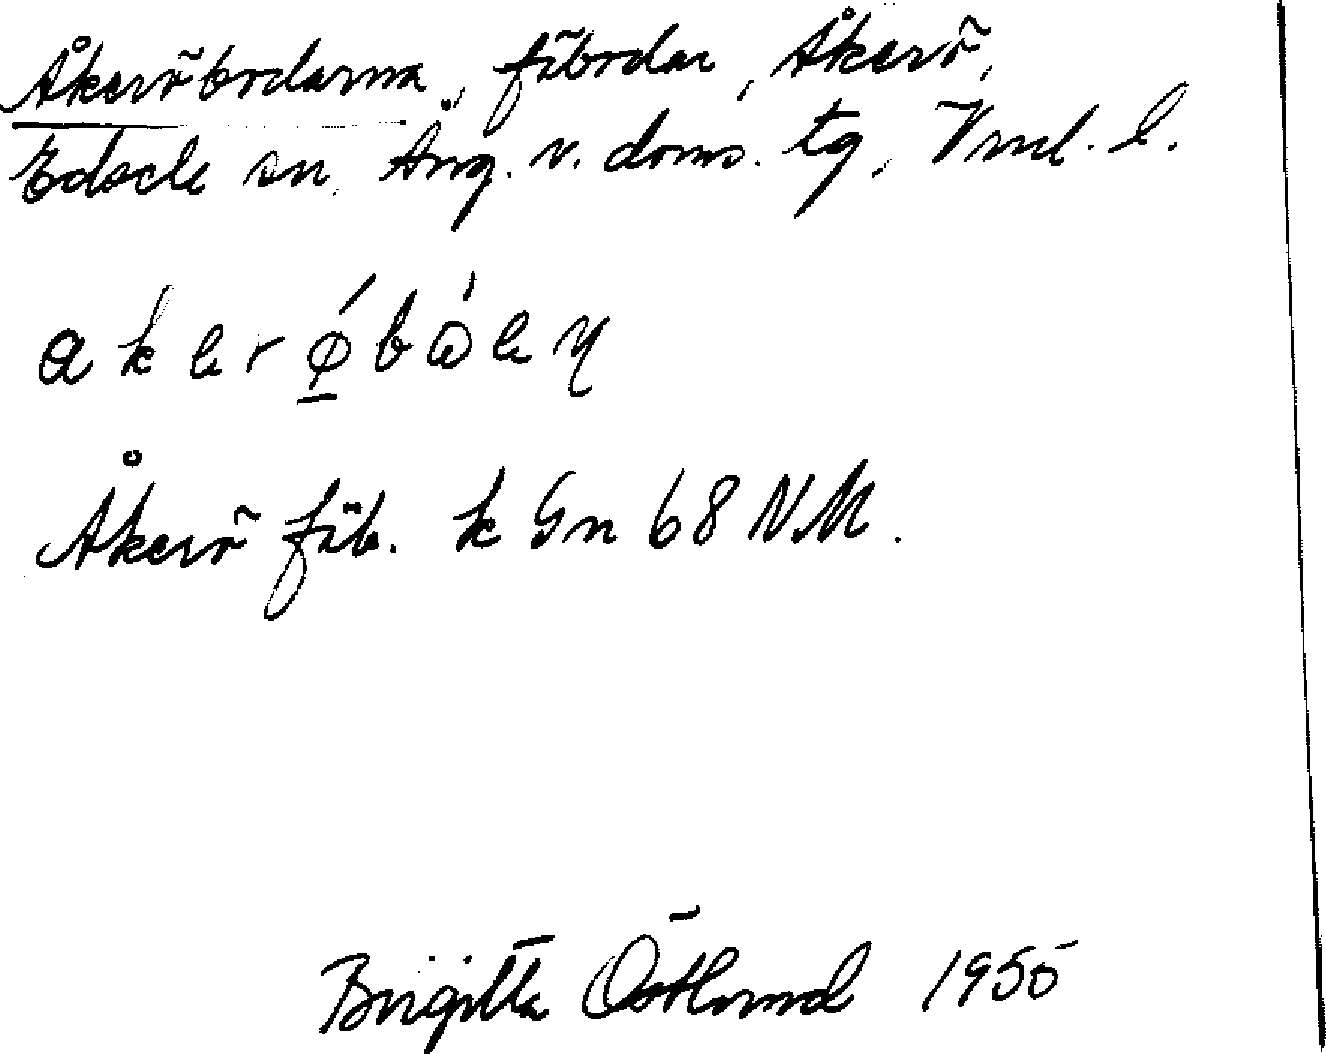 Åkeröbodarna, fäbodar, Åkerö,
Edsele sn, Ång. v. doms. tg, Vnl. l.
a k e r ǿ b ὼ e η
Åkerö fäb. k Gn 68 NM.
Birgitta Östlund 1955